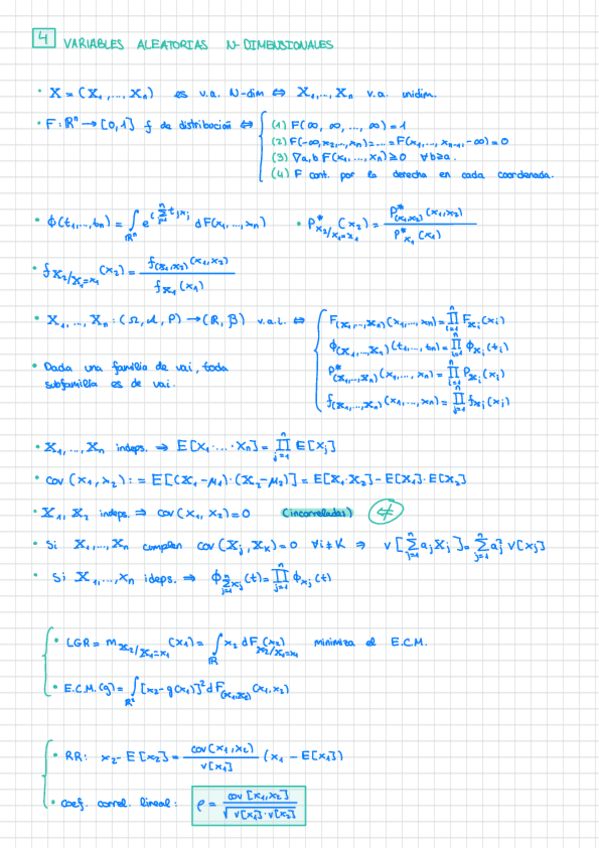 4 VARIABLES ALEATORIAS N-DIMENSIONALES
• X = (X₁,...,Xₙ) es v.a. N-dim ⇔ X₁,...,Xₙ v.a. unidim.
• F: ℝⁿ → [0,1] f de distribución ⇔ { (1) F(∞, ∞, ..., ∞) = 1
(2) F(-∞, x₂,...,xₙ) = ... = F(x₁,...,xₙ₋₁, -∞) = 0
(3) ∇a,b F(x₁,...,xₙ) ≥ 0 ∀b≥a.
(4) F cont. por la derecha en cada coordenada.
• ϕ(t₁,...,tₙ) = ∫_ℝⁿ e^{i Σ_{j=1}^n t_j x_j} dF(x₁,...,xₙ) • P*_{X₂/X₁=x₁}(x₂) = P*_{(X₁,X₂)}(x₁,x₂) / P*_{X₁}(x₁)
• f_{X₂/X₁=x₁}(x₂) = f_{(X₁,X₂)}(x₁,x₂) / f_{X₁}(x₁)
• X₁,...,Xₙ : (Ω, A, P) → (ℝ, β) v.a.i. ⇔ { F_{(X₁,...,Xₙ)}(x₁,...,xₙ) = ∏_{i=1}^n F_{X_i}(x_i)
ϕ_{(X₁,...,Xₙ)}(t₁,...,tₙ) = ∏_{i=1}^n ϕ_{X_i}(t_i)
• Dada una familia de vai, toda
subfamilia es de vai.
P*_{(X₁,...,Xₙ)}(x₁,...,xₙ) = ∏_{i=1}^n P_{X_i}(x_i)
f_{(X₁,...,Xₙ)}(x₁,...,xₙ) = ∏_{j=1}^n f_{X_j}(x_i)
• X₁,...,Xₙ indeps. ⇒ E[X₁·...·Xₙ] = ∏_{j=1}^n E[X_j]
• cov(x₁,x₂) := E[(X₁-μ₁)·(X₂-μ₂)] = E[X₁·X₂] - E[X₁]·E[X₂]
• X₁, X₂ indeps. ⇒ cov(X₁, X₂) = 0 (incorreladas) ⇍
• Si X₁,...,Xₙ cumplen cov(X_j, X_K) = 0 ∀i≠K ⇒ V[Σ_{j=1}^n a_j X_j] = Σ_{j=1}^n a_j² V[X_j]
• Si X₁,...,Xₙ ideps. ⇒ ϕ_{Σ_{j=1}^n X_j}(t) = ∏_{j=1}^n ϕ_{x_j}(t)
• LGR = m_{X₂/X₁=x₁}(x₁) = ∫_ℝ x₂ dF_{X₂/X₁=x₁}(x₂) minimiza el E.C.M.
• E.C.M.(g) = ∫_ℝ² [x₂ - g(x₁)]² dF_{(X₁,X₂)}(x₁,x₂)
• RR: x₂ - E[x₂] = cov(x₁,x₂) / V[x₁] (x₁ - E[x₁])
• coef. correl. lineal: ρ = cov[x₁,x₂] / √(V[x₁]·V[x₂])